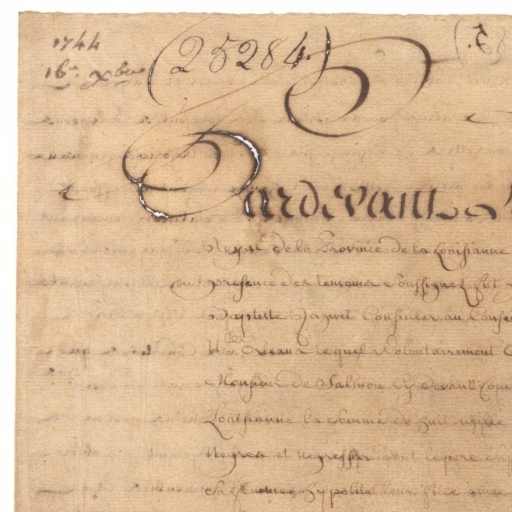 1744
(25284.)
16e. xbre
Pardevant
Royal de la Province de la Louisianne
presence des temoins soussignez fut
Baptiste Conseiller au Conse
Nlle Orleans lequel volontairement
Monsieur de Salmon cy devant Com
Louisianne la somme de huit mille
Negres et negresses dont le pere
sa femme, hypolite leur fille